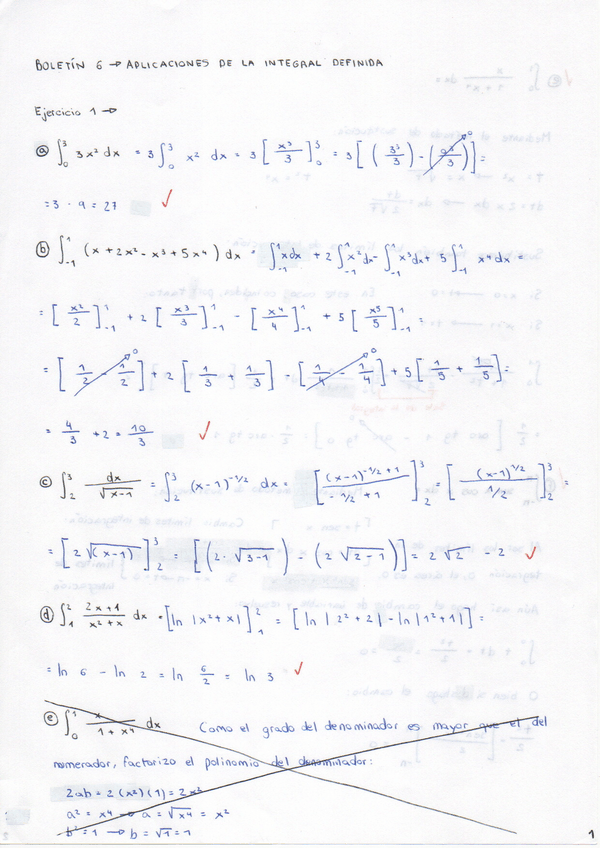 BOLETÍN 6 → APLICACIONES DE LA INTEGRAL DEFINIDA
Ejercicio 1 →
a) ∫₀³ 3x² dx = 3∫₀³ x² dx = 3 [x³/3]₀³ = 3 [(3³/3) - (0³/3)→0] =
= 3 · 9 = 27 ✓
b) ∫₋₁¹ (x + 2x² - x³ + 5x⁴) dx = ∫₋₁¹ x dx + 2∫₋₁¹ x² dx - ∫₋₁¹ x³ dx + 5∫₋₁¹ x⁴ dx =
= [x²/2]₋₁¹ + 2 [x³/3]₋₁¹ - [x⁴/4]₋₁¹ + 5 [x⁵/5]₋₁¹ =
= [1/2 - 1/2]→0 + 2 [1/3 + 1/3] - [1/4 - 1/4]→0 + 5 [1/5 + 1/5] =
= 4/3 + 2 = 10/3 ✓
c) ∫₂³ dx/√(x-1) = ∫₂³ (x-1)^(-1/2) dx = [(x-1)^(-1/2+1)/(-1/2+1)]₂³ = [(x-1)^(1/2)/(1/2)]₂³ =
= [2√(x-1)]₂³ = [(2·√(3-1)) - (2√(2-1))] = 2√2 - 2 ✓
d) ∫₁² (2x+1)/(x²+x) dx = [ln |x²+x|]₁² = [ln |2²+2| - ln |1²+1|] =
= ln 6 - ln 2 = ln 6/2 = ln 3 ✓
e) ∫₀¹ x/(1+x⁴) dx Como el grado del denominador es mayor que el del
numerador, factorizo el polinomio del denominador:
2ab = 2(x²)(1) = 2x²
a² = x⁴ → a = √x⁴ = x²
b² = 1 → b = √1 = 1
1